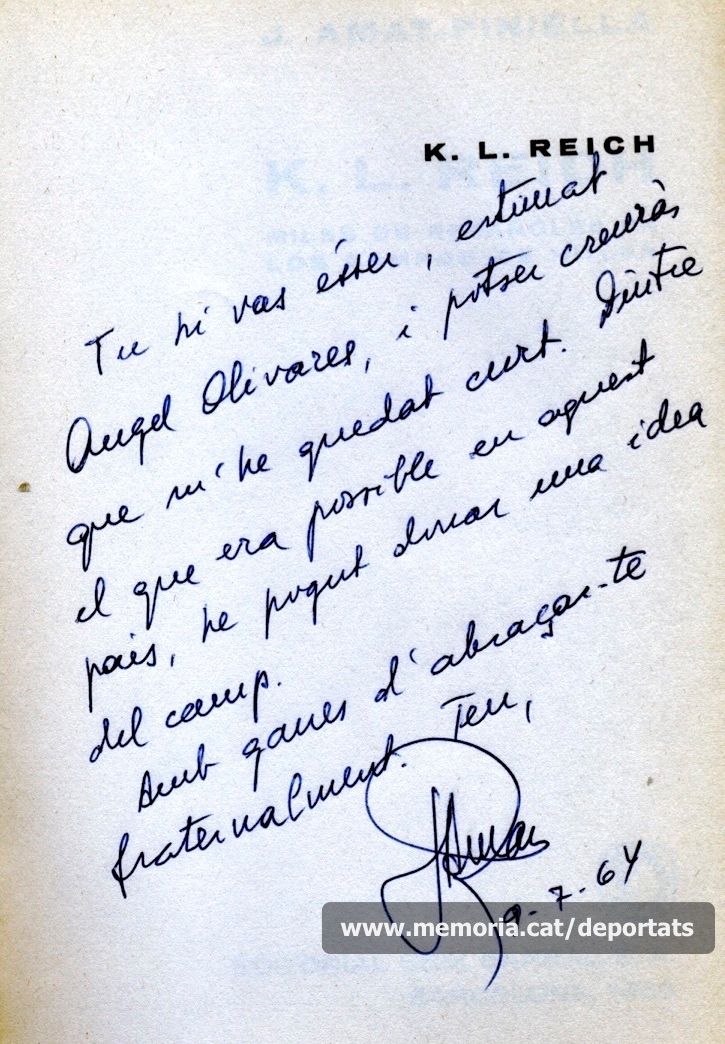 J. AMAT-PINIELLA
K. L. REICH
K. L. REICH
Tu hi vas ésser, estimat
Angel Olivares, i potser creuràs
que m'he quedat curt. Dintre
el que era possible en aquest
país, he pogut donar una idea
del camp.
Amb ganes d'abraçar-te
fraternalment. Teu,
JAmat
9-7-64
www.memoria.cat/deportats